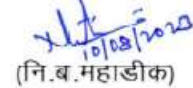 10/08/2023
(नि.ब.महाडीक)